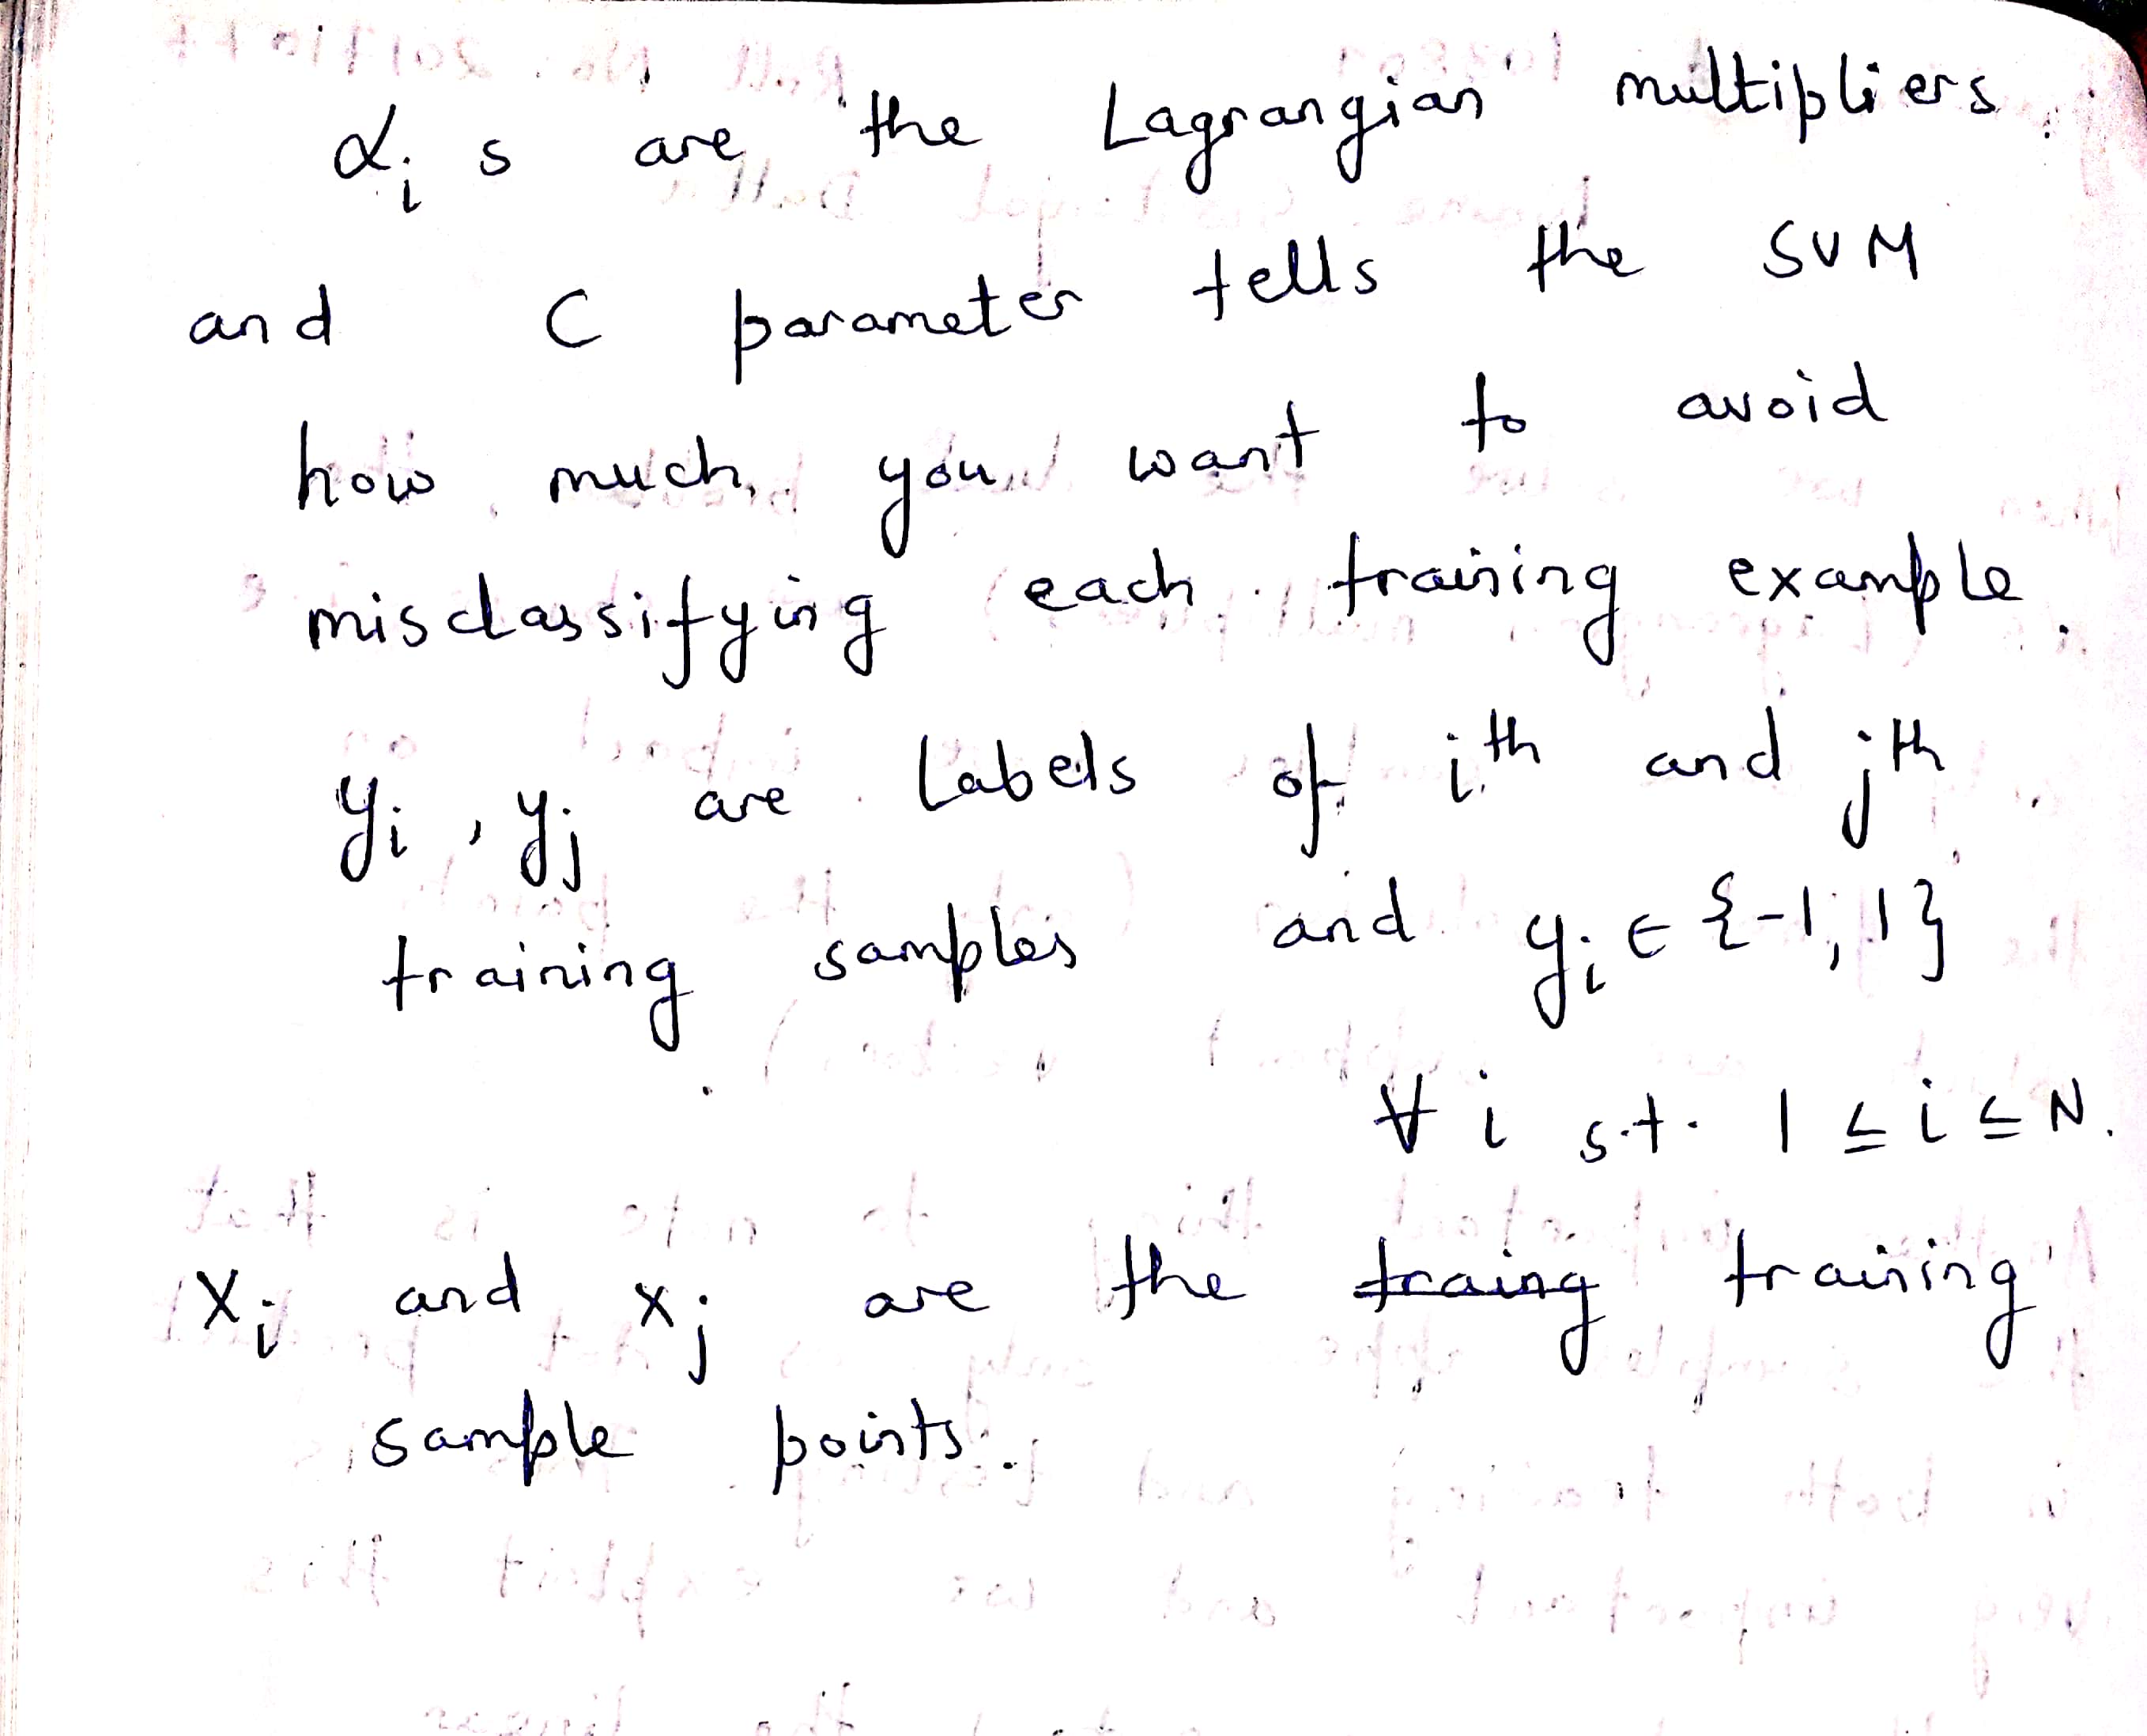 αᵢ s are the Lagrangian multipliers.
and C parameter tells the SVM
how much you want to avoid
misclassifying each training example.
yᵢ , yⱼ are labels of iᵗʰ and jᵗʰ
training samples and yᵢ ∈ {-1, 1}
∀ i s.t. 1 ≤ i ≤ N.
xᵢ and xⱼ are the traing training
sample points.